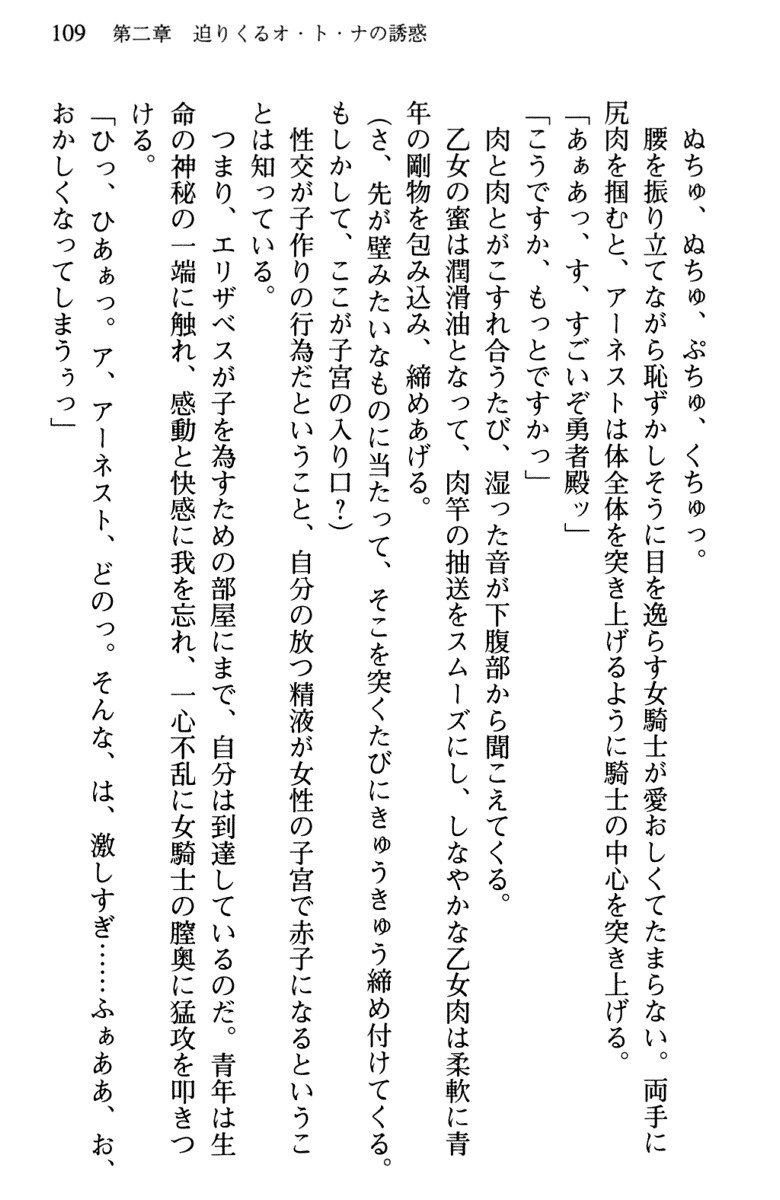 109　第二章　迫りくるオ・ト・ナの誘惑
ぬちゅ、ぬちゅ、ぷちゅ、くちゅっ。
腰を振り立てながら恥ずかしそうに目を逸らす女騎士が愛おしくてたまらない。両手に
尻肉を掴むと、アーネストは体全体を突き上げるように騎士の中心を突き上げる。
「あぁあっ、す、すごいぞ勇者殿ッ」
「こうですか、もっとですかっ」
肉と肉とがこすれ合うたび、湿った音が下腹部から聞こえてくる。
乙女の蜜は潤滑油となって、肉竿の抽送をスムーズにし、しなやかな乙女肉は柔軟に青
年の剛物を包み込み、締めあげる。
（さ、先が壁みたいなものに当たって、そこを突くたびにきゅうきゅう締め付けてくる。
もしかして、ここが子宮の入り口？）
性交が子作りの行為だということ、自分の放つ精液が女性の子宮で赤子になるというこ
とは知っている。
つまり、エリザベスが子を為すための部屋にまで、自分は到達しているのだ。青年は生
命の神秘の一端に触れ、感動と快感に我を忘れ、一心不乱に女騎士の膣奥に猛攻を叩きつ
ける。
「ひっ、ひあぁっ。ア、アーネスト、どのっ。そんな、は、激しすぎ……ふぁああ、お、
おかしくなってしまうぅっ」